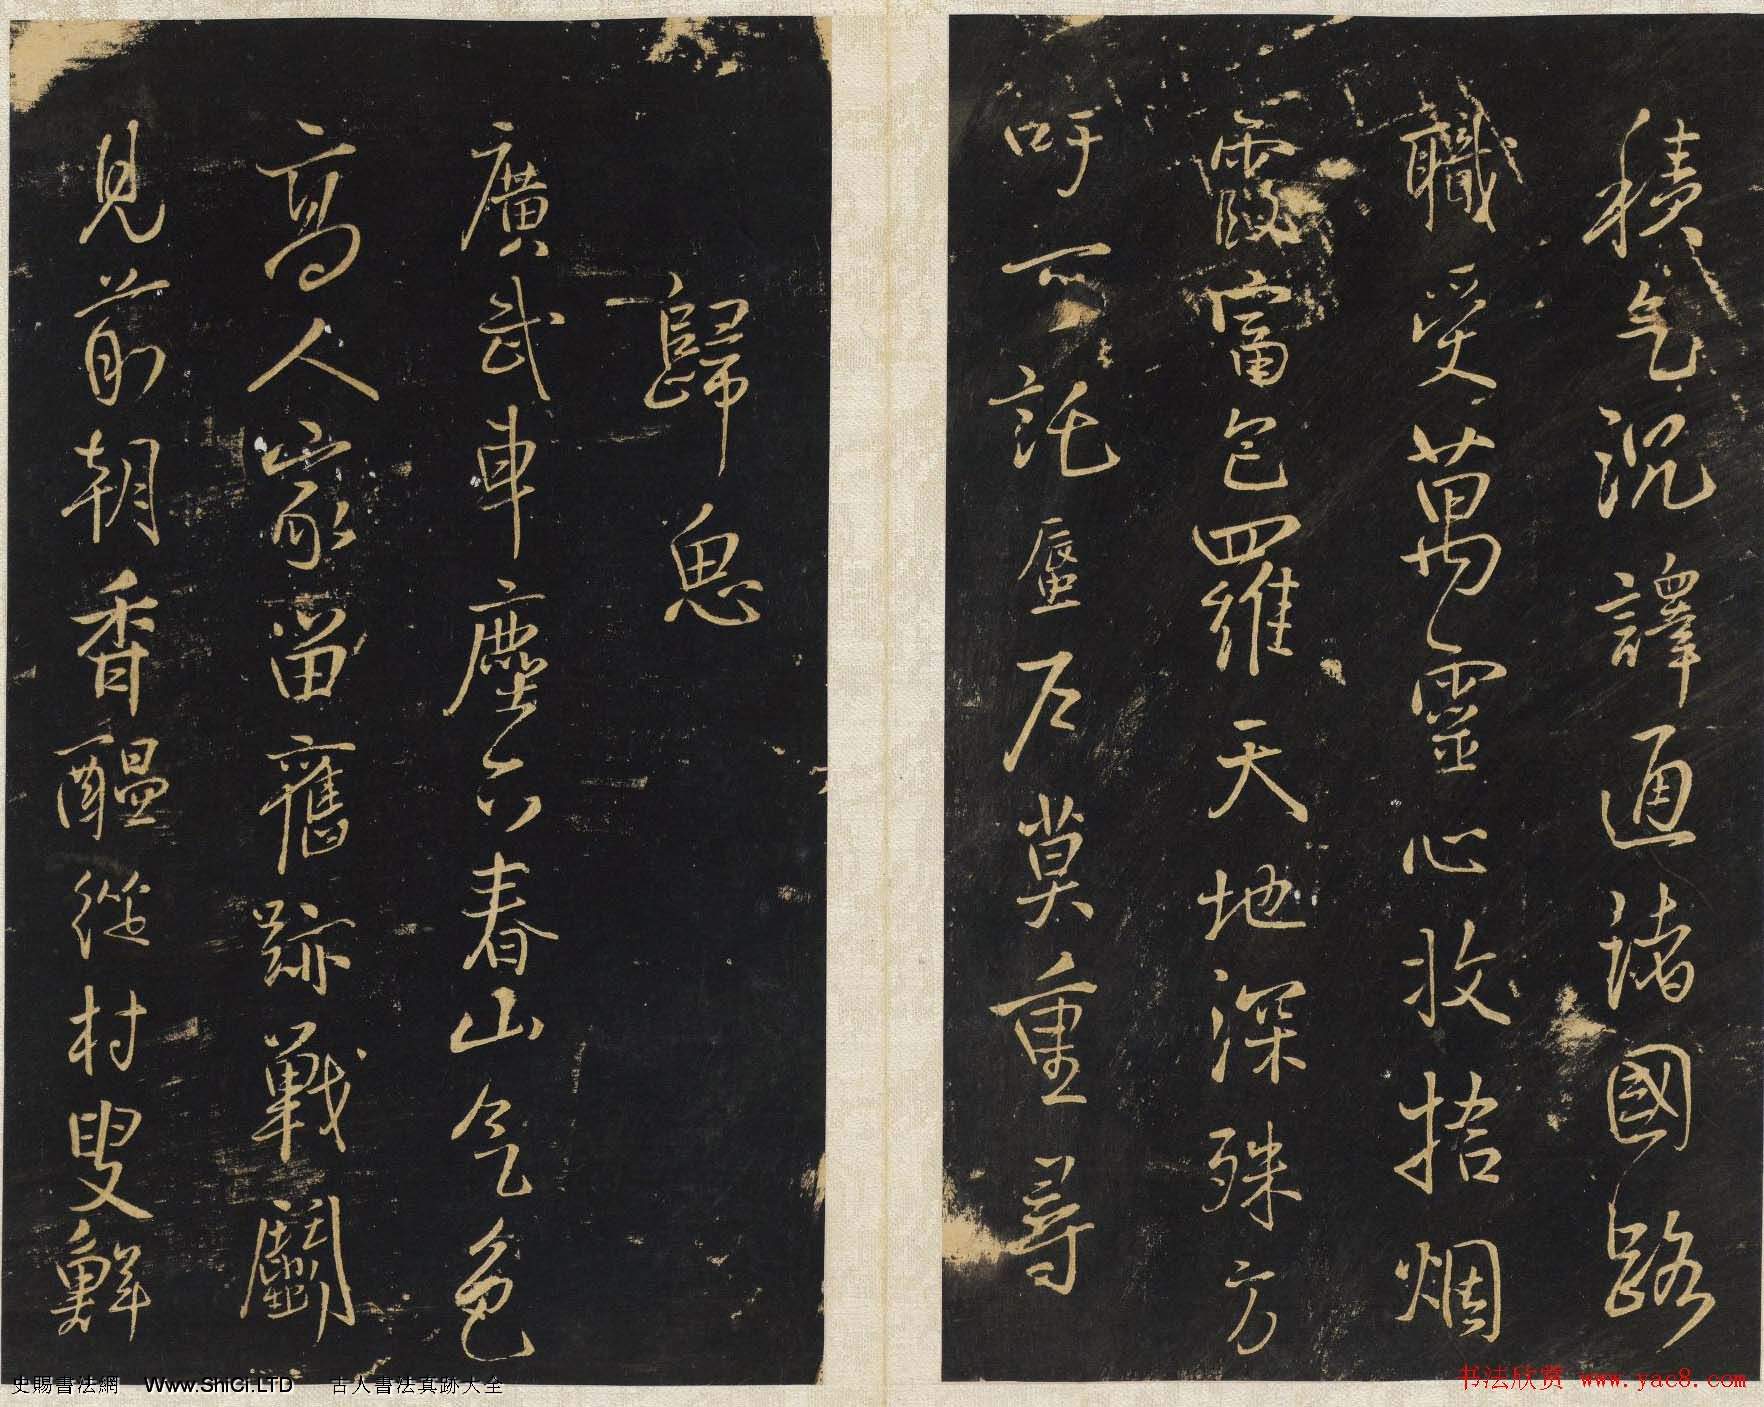 積气沉譯通諸國路
職受萬靈心收拾烟
霞富包羅天地深殊方
吁可託蜃尺莫重尋
歸思
廣武車塵六春山气色
高人家留舊跡戰鬪
見前朝香醞從村叟鮮
史賜書法網 Www.ShiCi.LTD 古人書法真跡大全
书法欣赏 www.yac8.com